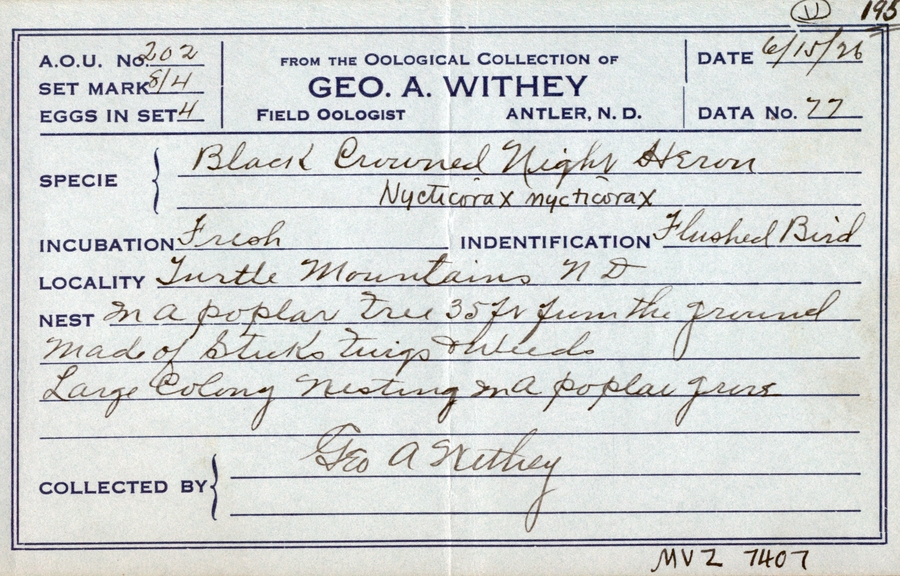 U 195
A.O.U. No. 202
SET MARK 8/4
EGGS IN SET 4
FROM THE OOLOGICAL COLLECTION OF
GEO. A. WITHEY
FIELD OOLOGIST ANTLER, N. D.
DATE 6/15/26
DATA No. 77
SPECIE Black Crowned Night Heron
Nycticorax nycticorax
INCUBATION Fresh INDENTIFICATION Flushed Bird
LOCALITY Turtle Mountains N D
NEST In a poplar tree 35 ft from the ground
Made of Sticks twigs & Weeds
Large Colony Nesting in a poplar grove
COLLECTED BY Geo A Withey
MVZ 7407